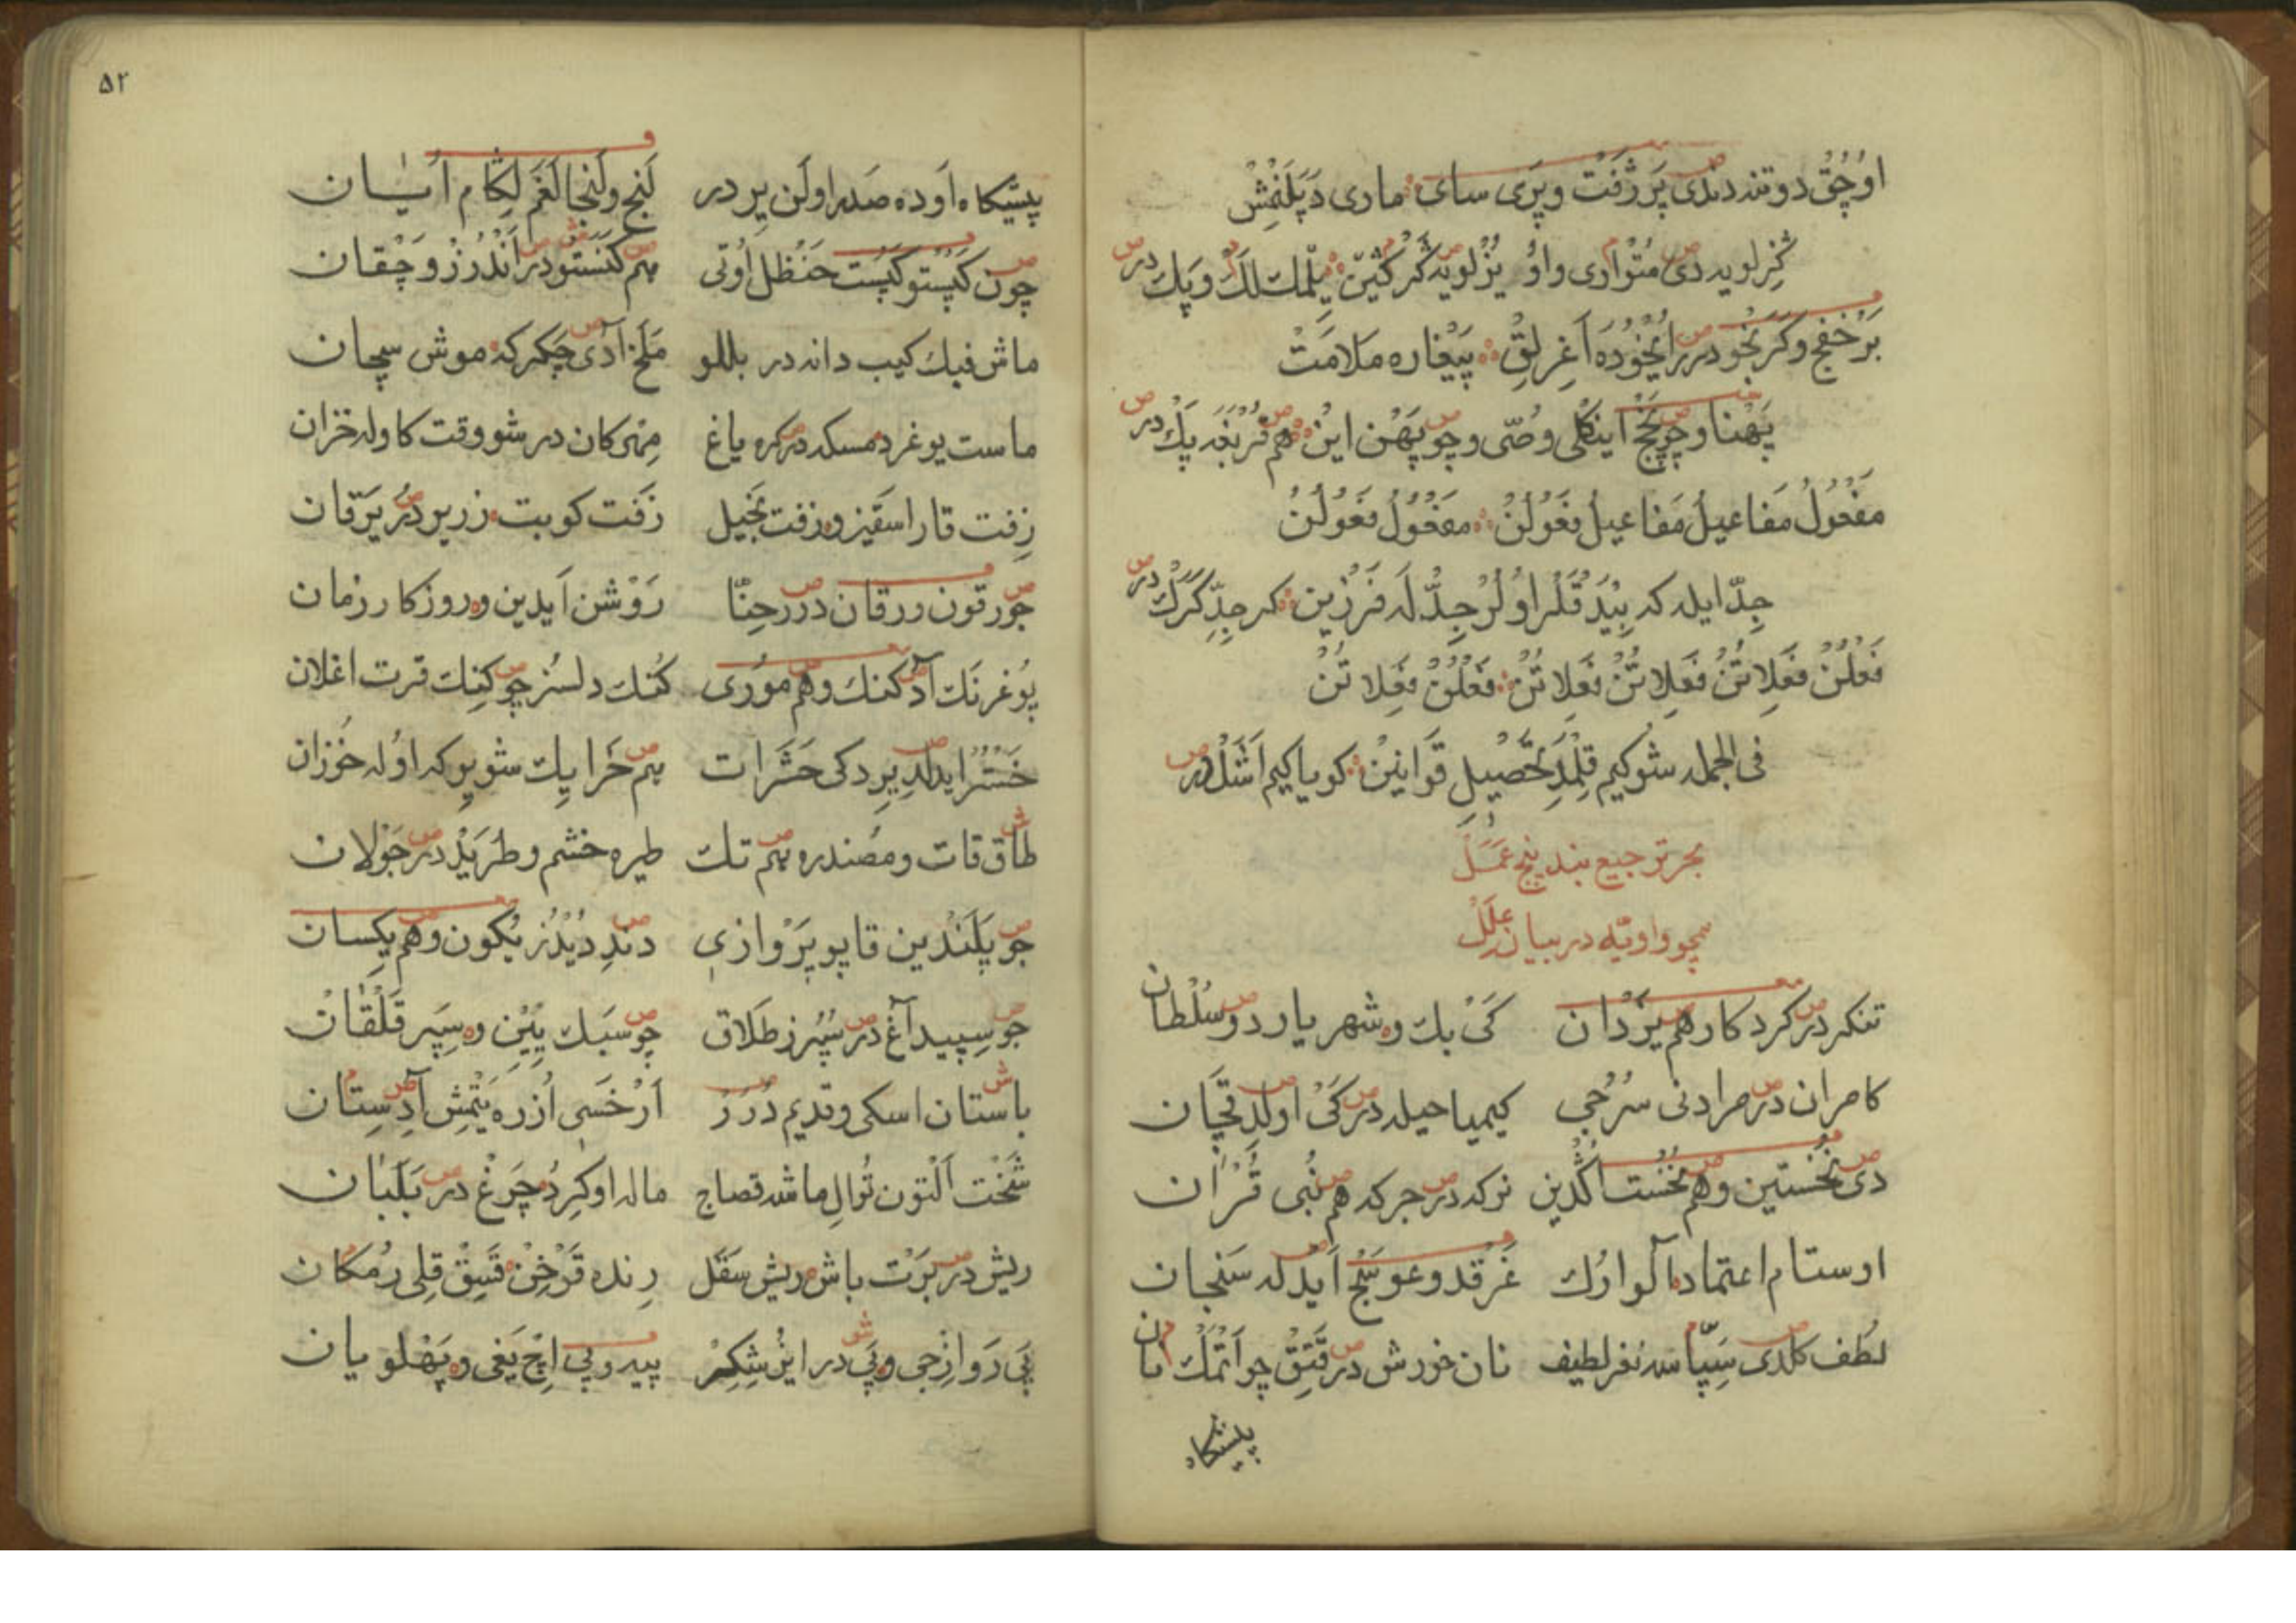 اوچق دوتند دندی پرژفت وپری سای ماری دپلنمش
کزلویه دی متواری واو یوزلویه کمرکشین بلمك لك وپك در
برخفج وکربخو در رابخوده اغرلق پیغاره ملامت
پهنا وچوپخج اینکلی وصی وچوپهن این هم قربغه پك در
مفعول مفاعیل مفاعیل فعولن مفعول فعولن
جد ایله که بیدقلر اولر جد له فرزین کر جد کرك در
فعلن فعلاتن فعلاتن فعلاتن فعلن فعلاتن
فی الجمله شوکیم قلمدی تحصیل قوانین کویاکیم اشل در
بحر ترجیع بند پنج عمل
سچو واویه در بیان علل
تنکر در کردکار هم یزدان کی بك وشهریار دو سلطان
کامران در مرادنی سرجی کیمیا حیله در کی اولدقچان
دی نخستین وهم نخست اکدین نرکه در جرکه هم نبی قران
اوستام اعتماد آلوارك غرقد وعوسج ایدله سنجان
لطف کلدی سپاسه نغز لطیف نان خورش در قتق چو اتمك نان
پیشکاه
۵۲
پیشکاه اوده صدر اولن یردر لنج ولنجا لغم لکام اسان
چون کپستو کپست حنظل اوتی هم کنستو در اندرز وچقان
ماش فیك کیب دانه در بللو ملخ آدی چکرکه موش سچان
ماست یوغرد مسکه در کره یاغ مهرکان در شو وقت کاوله خزان
زفت قارا سقیز وزفت بخیل زفت کوبت زریر در یرقان
جورقون ورقان در رحنا روشن آیدین وروزکار زمان
پوغرنك آد کنك وهم موری کنك دلسز چو کنك قرت اغلان
خستر ایدلدی یرده کی حشرات هم خرا پك شو یرکه اوله خوزان
طاق قات ومصندره هم تك طیره خشم وطرید در جولان
جو پلندین قاپو پروازی دند دیدنر یکون وهم یکسان
جو سپید آغ در سپرز طلاق چو سبك ییین وسپر قلقان
باستان اسکی وقدیم درر ارخسی ازره یتمش آد ستان
شخت التون توال ماشه قصاج ماله اوکرد چرغ در بلبان
ریش در برت باش وریش سقل رنده قزخن قسق قلی رمکان
پی روازجی وپی در ایز شکر پیه وپی اچ یغی وپهلو یان